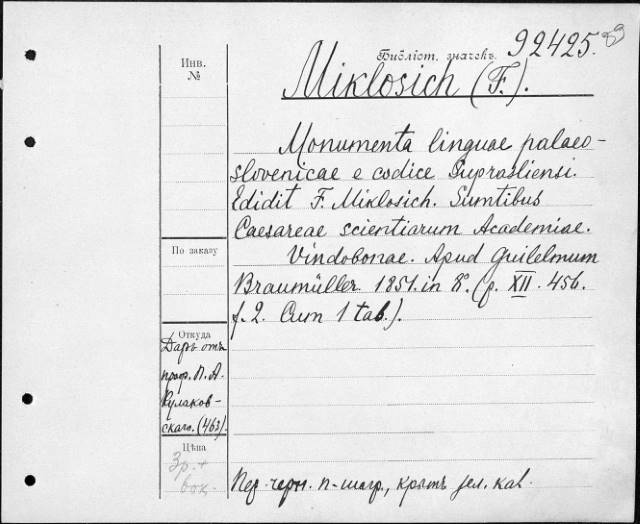 Библіот. значекъ. 92425.
Miklosich (F.).
Инв.
№
Monumenta linguae palaeo-
slovenicae e codice Suprasliensi.
Edidit F. Miklosich. Sumtibus
Caesareae scientiarum Academiae.
Vindobonae. Apud Guilelmum
Braumüller. 1851. in 8°. (p. XII. 456.
f. 2. Cum 1 tab.).
По заказу
Откуда
Даръ отъ
проф. П. А.
Кулаков-
скаго. (463).
Цѣна
3 р. +
Пер. черн. п-шагр., крытъ зел. кал.